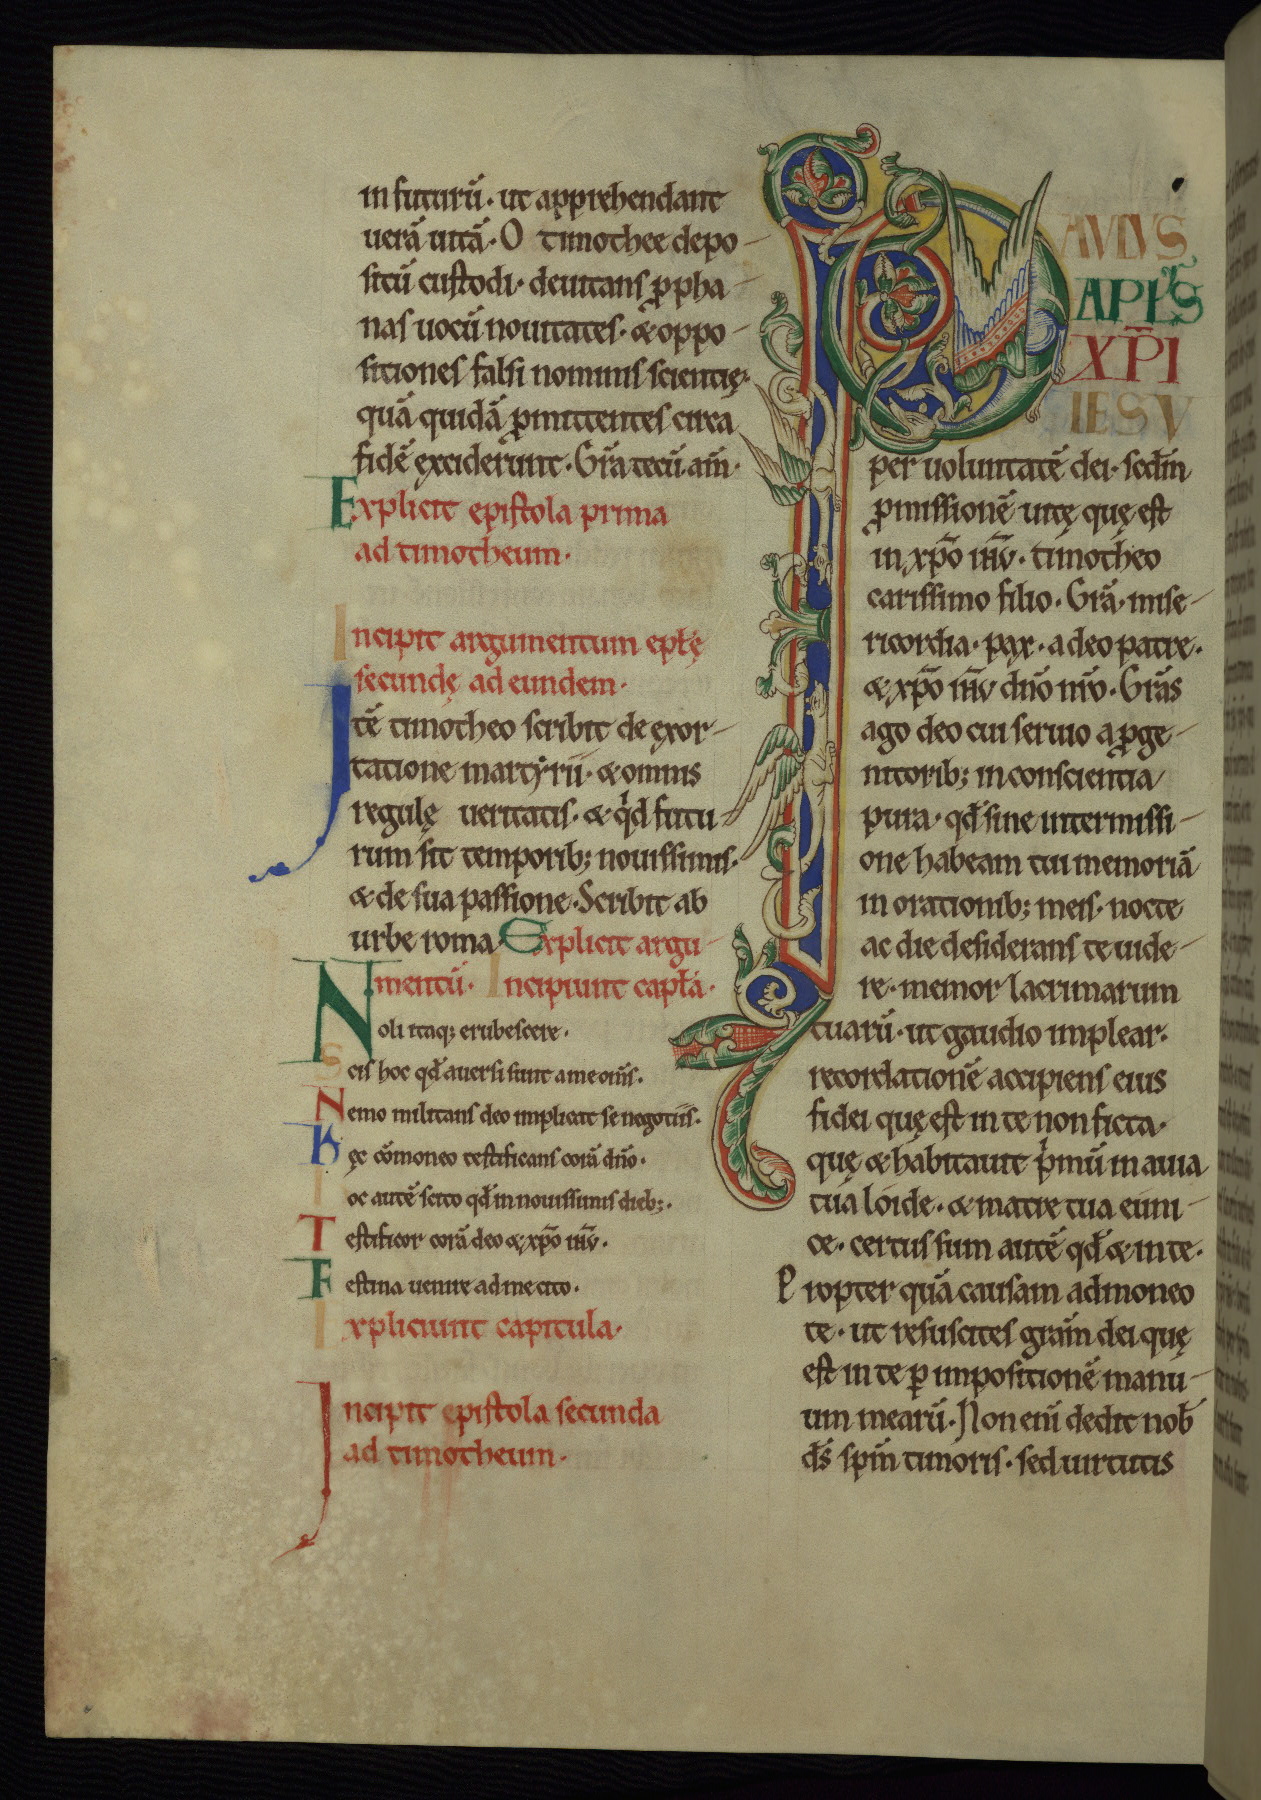 in futurū· ut apprehendant
uerā uitā· O timothee depo-
sitū custodi· deuitans ꝓpha-
nas uocū nouitates· & oppo-
sitiones falsi nominis scientię·
quā quidā ꝓmittentes circa
fidē exciderunt· Gr̄a tecū am̄·
Explicit epistola prima
ad timotheum·
Incipit argumentum epłę
secundę ad eundem·
Itē timotheo scribit de exor-
tatione martyrii· & omnis
regulę ueritatis· & qͥd futu-
rum sit temporib; nouissimis·
& de sua passione· Scribit ab
urbe roma· Explicit argu-
mentū· Incipiunt capła·
Noli itaq; erubescere·
Scis hoc qđ auersi sunt a me om̄s·
Nemo militans deo implicat se negotiis·
Hęc cōmoneo testificans corā dn̄o·
Hoc autē scito qđ in nouissimis dieb;·
Testificor corā deo & xp̄o ih̄u·
Festina uenire ad me cito·
Expliciunt capitula·
Incipit epistola secunda
ad timotheum·
PAVLVS
APŁS
XP̄I
IESV
per uoluntatē dei· scd̄m
ꝓmissionē uitę quę est
in xp̄o ih̄u· timotheo
carissimo filio· Gr̄a· mise-
ricordia· pax· a deo patre·
& xp̄o ih̄u dn̄o nr̄o· Gr̄as
ago deo cui seruio a ꝓge-
nitorib; in conscientia
pura· qđ sine intermissi-
one habeam tui memoriā
in orationib; meis· nocte
ac die desiderans te uide-
re· memor lacrimarum
tuarū· ut gaudio implear·
recordationē accipiens eius
fidei quę est in te non ficta·
quę & habitauit pͥmū in auia
tua loide· & matre tua euni-
ce· certus sum autē qđ & in te·
Propter quā causam admoneo
te· ut resuscites gr̄am dei quę
est in te ꝑ impositionē manu-
um mearū· Non eni̅ dedit nob̄
ds̄ sp̄m timoris· sed uirtutis